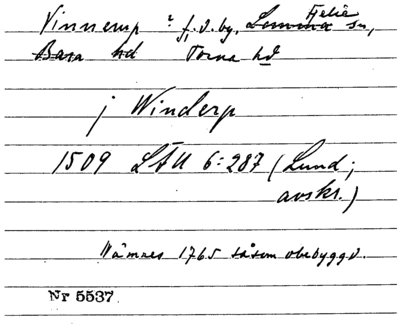 Vinnerup f.d. by, Lomma Fjelie sn,
Bara hd Torna hd
j Winderp
1509 LÄU 6:287 (Lund;
avskr.)
Nämnes 1765 såsom obebyggd.
Nr 5537